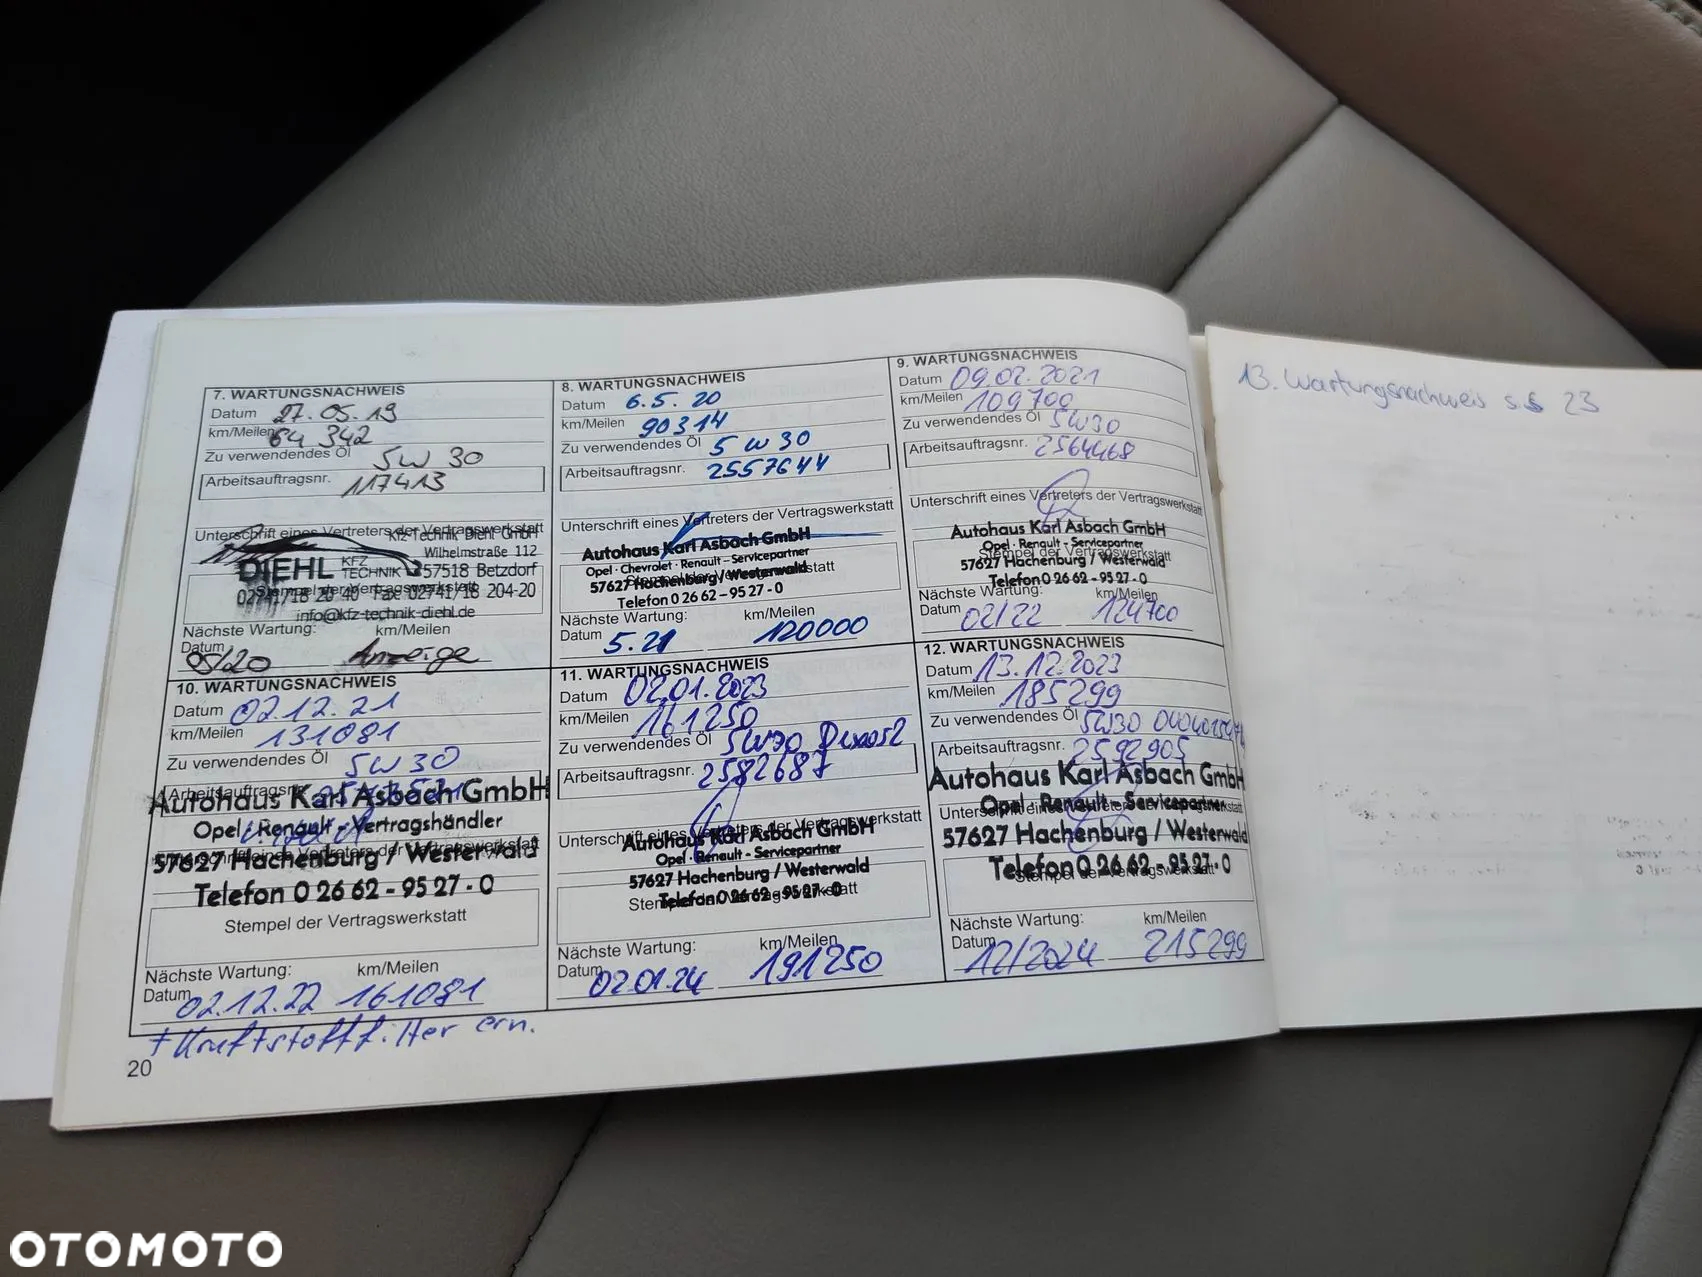 7. WARTUNGSNACHWEIS
Datum 27.05.19
km/Meilen 64 342
Zu verwendendes Öl 5W 30
Arbeitsauftragsnr. 117413
Unterschrift eines Vertreters der Vertragswerkstatt
Kfz-Technik Diehl GmbH
Wilhelmstraße 112
DIEHL KFZ TECHNIK 57518 Betzdorf
02741/18 20 40 Fax 02741/18 204-20
info@kfz-technik-diehl.de
Nächste Wartung: km/Meilen
Datum 05/20 Anzeige
8. WARTUNGSNACHWEIS
Datum 6.5.20
km/Meilen 90314
Zu verwendendes Öl 5 W 30
Arbeitsauftragsnr. 2557644
Unterschrift eines Vertreters der Vertragswerkstatt
Autohaus Karl Asbach GmbH
Opel · Chevrolet · Renault - Servicepartner
57627 Hachenburg / Westerwald
Telefon 0 26 62 - 95 27 - 0
Nächste Wartung: km/Meilen
Datum 5.21 120000
9. WARTUNGSNACHWEIS
Datum 09.02.2021
km/Meilen 109700
Zu verwendendes Öl 5W30
Arbeitsauftragsnr. 2564468
Unterschrift eines Vertreters der Vertragswerkstatt
Autohaus Karl Asbach GmbH
Opel · Renault - Servicepartner
Stempel der Vertragswerkstatt
57627 Hachenburg / Westerwald
Telefon 0 26 62 - 95 27 - 0
Nächste Wartung: km/Meilen
Datum 02/22 124700
10. WARTUNGSNACHWEIS
Datum 02.12.21
km/Meilen 131081
Zu verwendendes Öl 5W30
Arbeitsauftragsnr.
Autohaus Karl Asbach GmbH
Opel · Renault - Vertragshändler
57627 Hachenburg / Westerwald
Telefon 0 26 62 - 95 27 - 0
Stempel der Vertragswerkstatt
Nächste Wartung: km/Meilen
Datum 02.12.22 161081
+ Kraftstofffilter ern.
11. WARTUNGSNACHWEIS
Datum 02.01.2023
km/Meilen 161250
Zu verwendendes Öl 5W30
Arbeitsauftragsnr. 2582687
Unterschrift eines Vertreters der Vertragswerkstatt
Autohaus Karl Asbach GmbH
Opel · Renault - Servicepartner
57627 Hachenburg / Westerwald
Stempel der Vertragswerkstatt
Telefon 0 26 62 - 95 27 - 0
Nächste Wartung: km/Meilen
Datum 02.01.24 191250
12. WARTUNGSNACHWEIS
Datum 13.12.2023
km/Meilen 185299
Zu verwendendes Öl 5W30
Arbeitsauftragsnr. 2592905
Autohaus Karl Asbach GmbH
Opel · Renault - Servicepartner
57627 Hachenburg / Westerwald
Telefon 0 26 62 - 95 27 - 0
Nächste Wartung: km/Meilen
Datum 12/2024 215299
20
13. Wartungsnachweis s. S 23
OTOMOTO